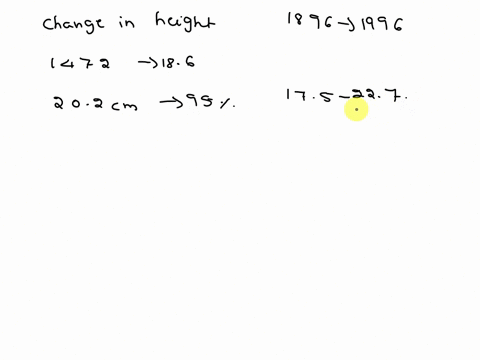 Change in height 1896 → 1996
1472 → 18.6
20.2 cm → 95 %. 17.5 - 22.7.